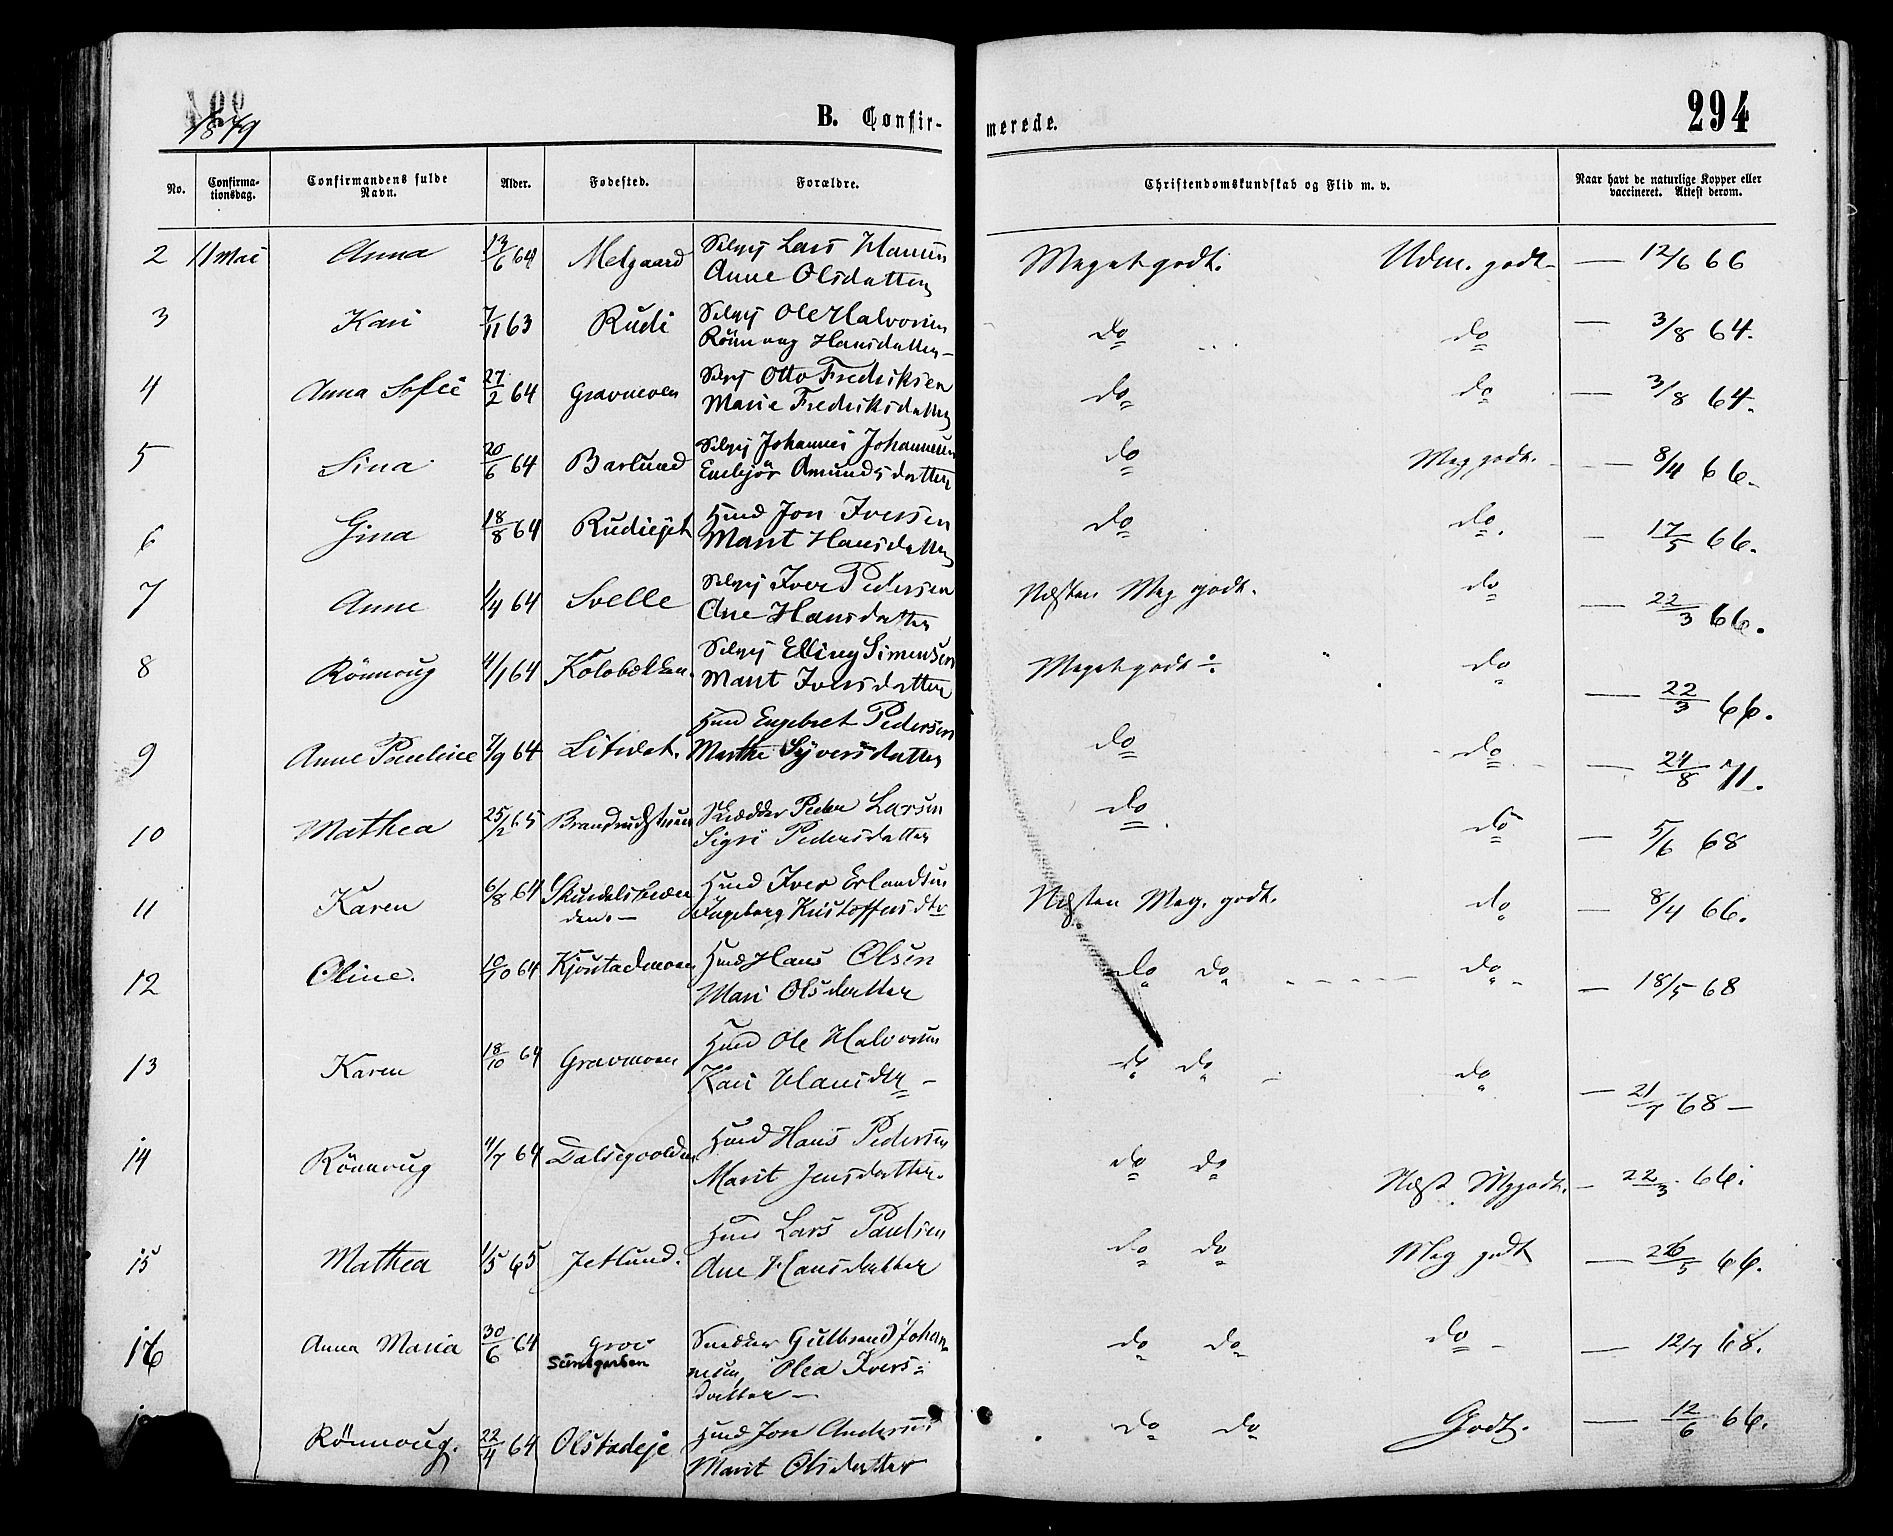 1879
B. Confir-
merede.
294
No.
Confirma-
tionsdag.
Confirmandens fulde
Navn.
Alder.
Fødested.
Forældre.
Christendomskundskab og Flid m. v.
Naar havt de naturlige Kopper eller
vaccineret. Attest derom.
2 11 Mai Anna 13/6 64 Melgaard Selvej Lars Hansen Meget godt. Udm. godt — 12/6 66
Anne Olsdatter
3 Kari 7/11 63 Rudi Selvej Ole Halvorsen do do — 3/8 64.
Rönnoug Hansdatter —
4 Anna Sofie 27/2 64 Gravmoen Selvej Otto Fredriksen do do — 3/8 64.
Marie Fredriksdatter
5 Sina 20/6 64 Barlund Selvej Johannes Johannesen do Meg godt. — 8/4 66.
Embjör Amundsdatter
6 Gina 18/8 64 Rudiejet Husd Jon Iversen do do. — 17/5 66.
Marit Hansdatter
7 Anne 1/4 64 Svelle Selvej Iver Pedersen Næsten Meg godt. do — 22/3 66.
Ane Hansdatter
8 Rönnoug 4/1 64 Kolobækken. Selvej Elling Simensen Meget godt ÷ do — 22/3 66.
Marit Iversdatter
9 Anne Pauline 7/9 64 Husd Engebret Pedersen do do — 24/8 71.
Marthe Syversdatter
10 Mathea 25/2 65 Brandrudstuen Skrædder Peder Larsen do do — 5/6 68
Sigri Pedersdatter
11 Karen 6/8 64 Husd Iver Erlandsen Næsten Meg. godt. do — 8/4 66.
Ingeborg Kristoffersdtr
12 Oline. 10/10 64 Kjorstadmoen Husd Hans Olsen do do do — 18/5 68
Mari Olsdatter
13 Karen 18/10 64 Gravmoen Husd Ole Halvorsen do do do — 21/7 68 —
Kari Hansdtr —
14 Rönnoug 4/7 64 Husd Hans Pedersen do do Næst Mg godt. — 22/3 66.
Marit Jensdatter.
15 Mathea 1/5 65 Jetlund. Husd Lars Paulsen do do Meg godt — 26/5 66.
Ane Hansdatter
16 Anna Maria 30/6 64 Grov Snedker Gulbrand Johan- do do do — 12/7 68.
nesen, Olea Ivers-
datter —
Rönnoug. 22/4 64 Olstadeje Husd Jon Andersen do do Godt. — 12/6 66.
Marit Olsdatter